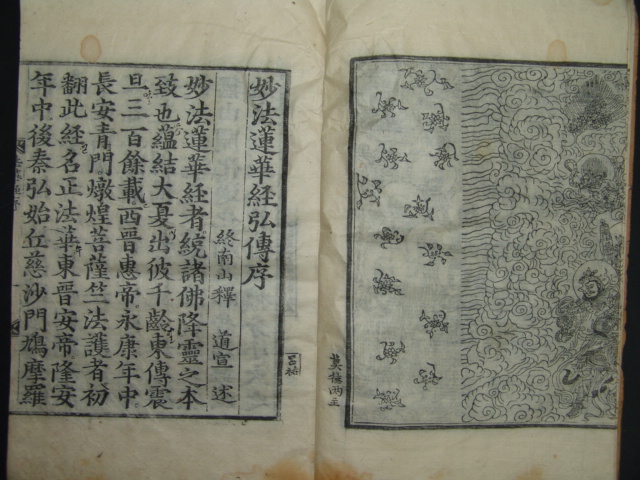 妙法蓮華經弘傳序
終南山釋　道宣　述
妙法蓮華經者統諸佛降靈之本
致也蘊結大夏出彼千齡東傳震
旦三百餘載西晉惠帝永康年中
長安青門燉煌菩薩竺法護者初
翻此經名正法華東晉安帝隆安
年中後秦弘始丘慈沙門鳩摩羅